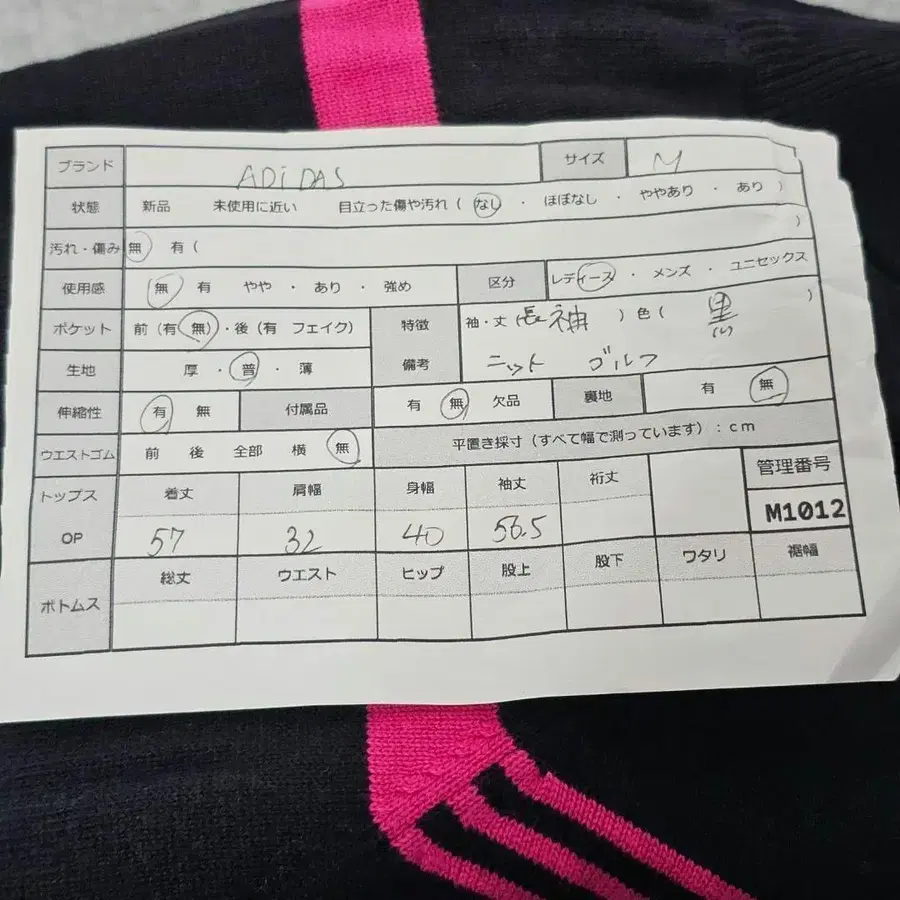 ブランド ADiDAS サイズ M
状態 新品 未使用に近い 目立った傷や汚れ ( なし ・ ほぼなし ・ ややあり ・ あり )
汚れ・傷み 無 有 ( )
使用感 無 有 やや ・ あり ・ 強め 区分 レディース ・ メンズ ・ ユニセックス
ポケット 前 (有 無) ・後 (有 フェイク) 特徴 袖・丈 長袖 ) 色 ( 黒 )
生地 厚 ・ 普 ・ 薄 備考 ニット ゴルフ
伸縮性 有 無 付属品 有 無 欠品 裏地 有 無
ウエストゴム 前 後 全部 横 無 平置き採寸 (すべて幅で測っています) : cm
トップス 着丈 肩幅 身幅 袖丈 裄丈 管理番号
OP 57 32 40 56.5 M1012
ボトムス 総丈 ウエスト ヒップ 股上 股下 ワタリ 裾幅